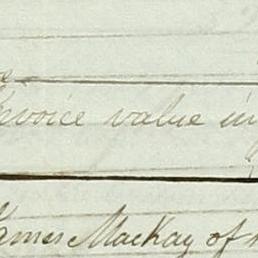 Invoice value in
James MacKay of